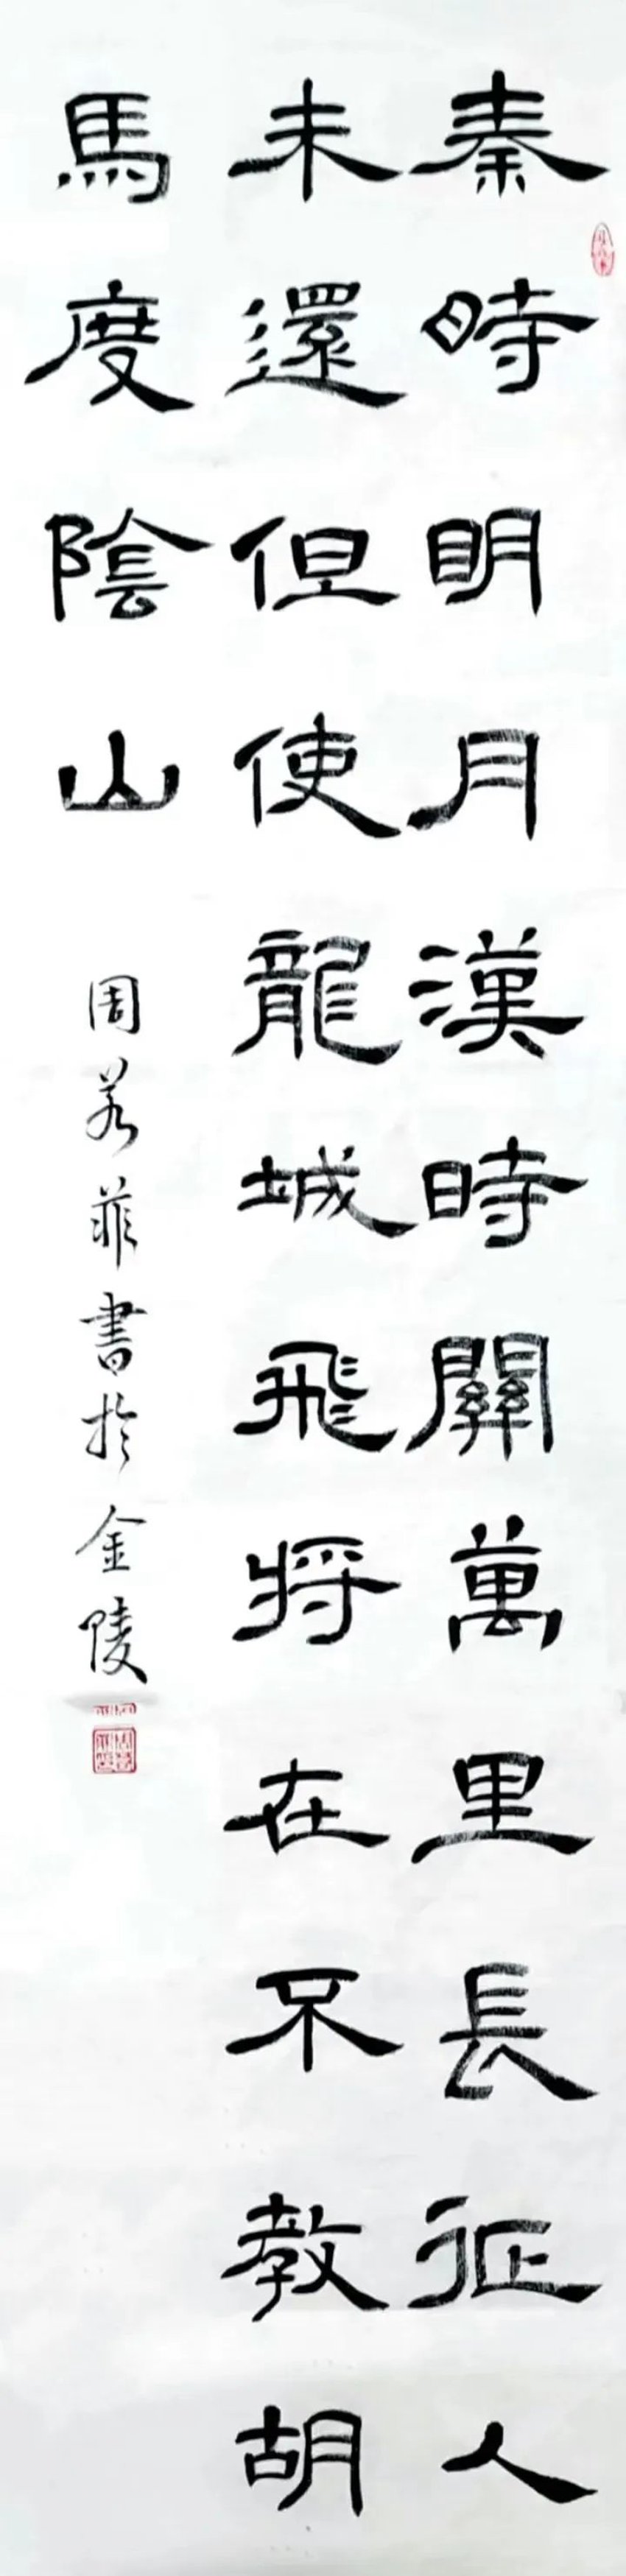 秦時明月漢時關萬里長征人
未還但使龍城飛將在不教胡
馬度陰山
周若菲書於金陵